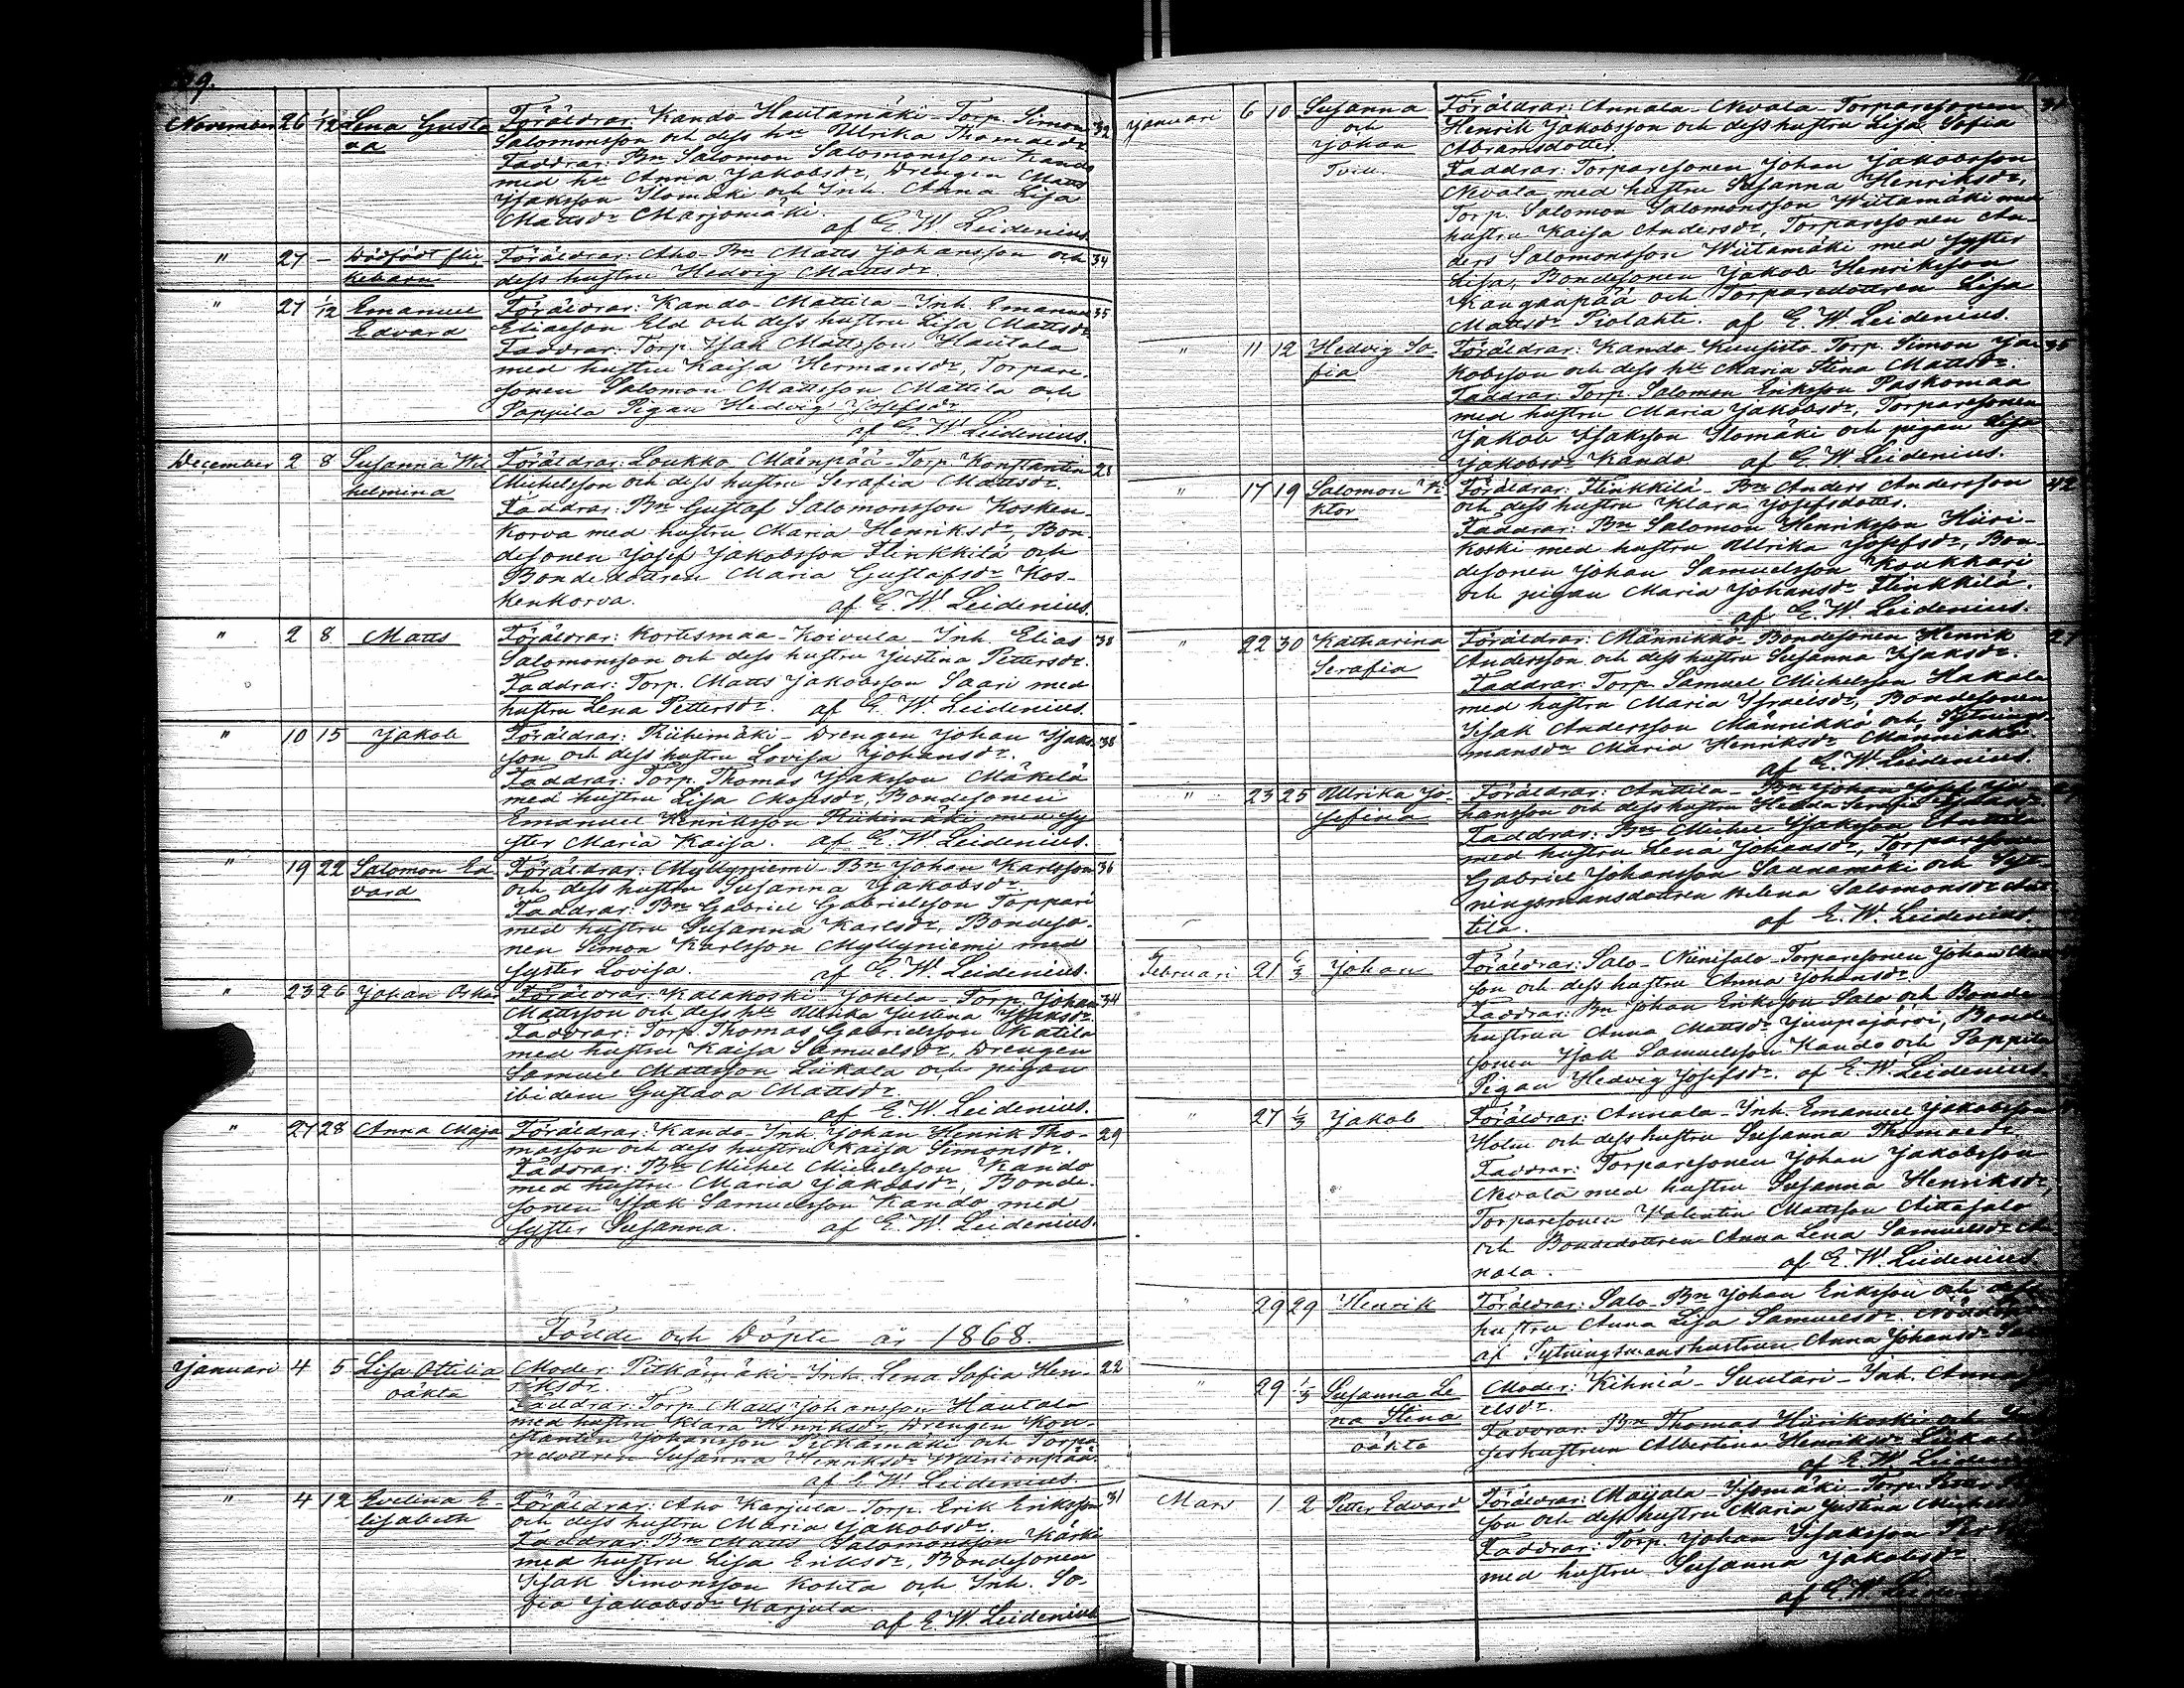 9.
November 26 1/12 Lena Gusta Föräldrar: Kando Hautamäki - Torp. Simon 32
va Salomonsson och dess hu Ullrika Thomaedr.
Faddrar: Bn Salomon Salomonsson Kando
med hu Anna Jakobsdr, Drengen Matts
Isaksson Ilomäki och Inh. Anna Lisa
Mattsdr Marjomäki.
af E. W. Leidenius.
" 27 - Dödfödt flic- Föräldrar: Aho - Bn Matts Johansson och 34
kebarn dess hustru Hedvig Mattsdr.
" 27 1/12 Emanuel Föräldrar: Kando - Mattila - Inh. Emanuel 35
Edvard Eliaeson Eld och dess hustru Lisa Mattsdr
Faddrar: Torp. Isak Mattsson Hautala
med hustru Kaisa Hermansdr, Torpare-
sonen Salomon Mattsson Mattila och
Pappila Pigan Hedvig Josefsdr
af E. W. Leidenius.
December 2 8 Susanna Wil Föräldrar: Loukko Mäenpää - Torp. Konstantin 28
helmina Michelsson och dess hustru Serafia Mattsdr.
Faddrar: Bn Gustaf Salomonsson Kosken-
korva med hustru Maria Henriksdr, Bon-
desonen Josef Jakobsson Flinkkilä och
Bondedottren Maria Gustafsdr Kos-
kenkorva. af E. W. Leidenius.
" 2 8 Matts Föräldrar: Kortesmaa - Koivula - Inh. Elias 38
Salomonsson och dess hustru Justina Pettersdr.
Faddrar: Torp. Matts Jakobsson Saari med
hustru Lena Pettersdr. af E. W. Leidenius.
" 10 15 Jakob Föräldrar: Riihimäki - Drengen Johan Isaks- 38
son och dess hustru Lovisa Johansdr.
Faddrar: Torp. Thomas Isaksson Mäkelä
med hustru Lisa Mosesdr, Bondesonen
Emanuel Henriksson Riihimäki med sy
ster Maria Kaisa. af E. W. Leidenius.
" 19 22 Salomon Ed Föräldrar: Myllyniemi - Bn Johan Karlsson 36
vard och dess hustru Susanna Jakobsdr.
Faddrar: Bn Gabriel Gabrielsson Toppari
med hustru Susanna Karlsdr, Bondeso-
nen Simon Karlsson Myllyniemi med
syster Lovisa. af E. W. Leidenius.
" 23 26 Johan Oskar Föräldrar: Kalakoski - Jokela - Torp. Johan 34
Mattsson och dess hu Ullrika Justina Isaksdr.
Faddrar: Torp. Thomas Gabrielsson Katila
med hustru Kaisa Samuelsdr, Drengen
Samuel Mattsson Liikala och pigan
ibidem Gustava Mattsdr.
af E. W. Leidenius.
" 27 28 Anna Maja Föräldrar: Kando - Inh. Johan Henrik Tho- 29
masson och dess hustru Kaisa Simonsdr.
Faddrar: Bn Michel Michelsson Kando
med hustru Maria Jakobsdr, Bonde-
sonen Isak Samuelsson Kando med
syster Susanna. af E. W. Leidenius.
Födde och Döpte år 1868.
Januari 4 5 Lisa Ottilia Moder: Pitkämäki - Inh. Lena Sofia Hen- 22
oäkta riksdr.
Faddrar: Torp. Matts Johansson Hautala
med hustru Klara Henriksdr, Drengen Kon-
stantin Johansson Pitkämäki och Torpa
redottren Susanna Henriksdr Wäinionpää.
af E. W. Leidenius.
" 4 12 Evelina E- Föräldrar: Aho Karjula - Torp. Erik Eriksson 31
lisabeth och dess hustru Maria Jakobsdr.
Faddrar: Bn Matts Salomonsson Kärki
med hustru Lisa Eriksdr, Bondesonen
Isak Simonsson Kohta och Inh. So-
fia Jakobsdr Karjula.
af E. W. Leidenius
Januari 6 10 Susanna Föräldrar: Annala - Nevala - Torparesonen
och Henrik Jakobsson och dess hustru Lisa Sofia
Johan Abramsdotter.
Tvill. Faddrar: Torparesonen Johan Jakobsson
Nevala med hustru Susanna Henriksdr,
Torp. Salomon Salomonsson Wiitamäki med
hustru Kaisa Andersdr, Torparesonen An-
ders Salomonsson Wiitamäki med syster
Lisa, Bondesonen Jakob Henriksson
Kangaspää och Torparedottren Lisa
Mattsdr Piolahti. af E. W. Leidenius.
" 11 12 Hedvig So- Föräldrar: Kando - Kuusisto - Torp. Simon Ja- 35
fia kobsson och dess hu Maria Stina Mattsdr.
Faddrar: Torp. Salomon Eriksson Paskomaa
med hustru Maria Jakobsdr, Torparesonen
Jakob Isaksson Ilomäki och pigan Lisa
Jakobsdr Kando. af E. W. Leidenius.
" 17 19 Salomon Vi- Föräldrar: Flinkkilä - Bn Anders Andersson 42
ktor och dess hustru Klara Josefsdotter.
Faddrar: Bn Salomon Henriksson Hiiri-
koski med hustru Ullrika Josefsdr, Bon-
desonen Johan Samuelsson Koukkari
och pigan Maria Johansdr Flinkkilä.
af E. W. Leidenius.
" 22 30 Katharina Föräldrar: Männikkö - Bondesonen Henrik 27
Serafia Andersson och dess hustru Susanna Isaksdr.
Faddrar: Torp. Samuel Michelsson Hakala
med hustru Maria Israelsdr, Bondesonen
Isak Andersson Männikkö och Sytnings-
mansdr Maria Henriksdr Männikkö.
af E. W. Leidenius.
" 23 25 Ullrika Jo- Föräldrar: Anttila - Bn Johan Josef Jo-
sefina hansson och dess hustru Hedda Serafia
Faddrar: Bn Michel Isaksson Anttila
med hustru Lena Johansdr, Torparesonen
Gabriel Johansson Saunamäki och Syt-
ningsmansdottren Milena Salomonsdr Ant
tila. af E. W. Leidenius.
Februari 21 6/3 Johan Föräldrar: Salo - Niinisalo - Torparesonen Johan
son och dess hustru Anna Johansdr.
Faddrar: Bn Johan Eriksson Salo och Bonde-
hustrun Anna Mattsdr Juupajärvi, Bonde
sonen Isak Samuelsson Kando och Pappila
Pigan Hedvig Josefsdr. af E. W. Leidenius.
" 27 1/3 Jakob Föräldrar: Annala - Inh. Emanuel Jakobsson
Holm och dess hustru Susanna Thomaedr.
Faddrar: Torparesonen Johan Jakobsson
Nevala med hustru Susanna Henriksdr,
Torparesonen Valentin Mattsson Aittasalo
och Bondedottren Anna Lena Samuelsdr An-
nala. af E. W. Leidenius.
" 29 29 Henrik Föräldrar: Salo - Bn Johan Eriksson och dess
hustru Anna Lisa Samuelsdr. Nöddöpt
af Sytningsmanshustrun Anna Johansdr
" 29 1/3 Susanna Le- Moder: Kihniä - Suutari - Inh. Anna
na Stina elsdr.
oäkta Faddrar: Bn Thomas Hiirikoski och
hustrun Albertina Henriksdr
af E. W. Leidenius
Mars 1 2 Petter Edvard Föräldrar: Mayala - Isomäki - Torp.
son och dess hustru Maria Justina
Faddrar: Torp. Johan Isaksson
med hustru Susanna Jakobsdr.
af E. W. Leidenius